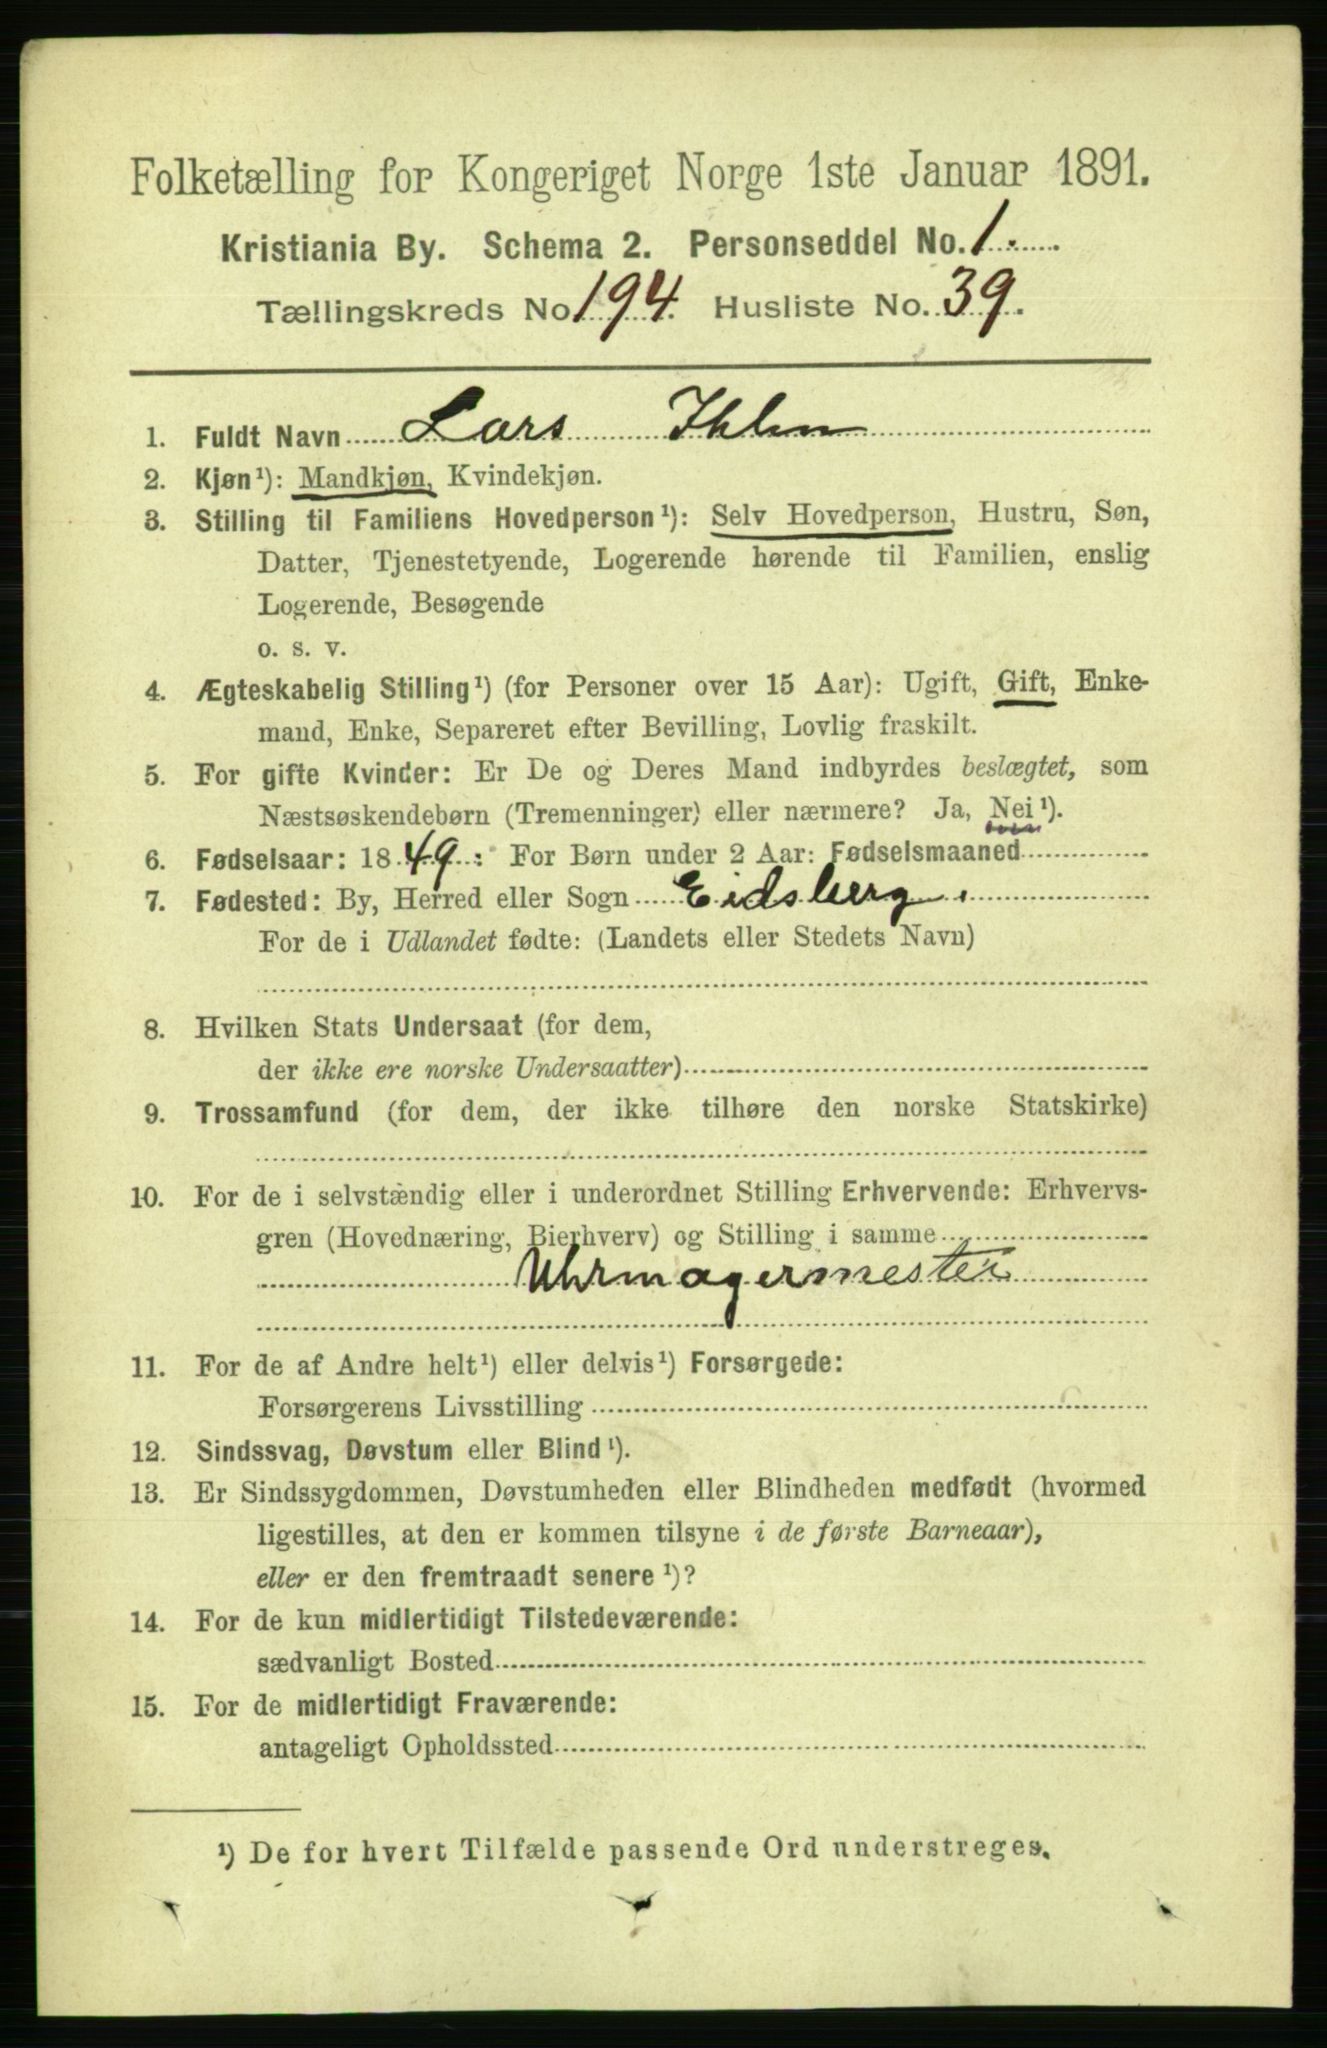 Folketælling for Kongeriget Norge 1ste Januar 1891.
Kristiania By. Schema 2. Personseddel No. 1.
Tællingskreds No. 194. Husliste No. 39.
1. Fuldt Navn Lars Ihlen
2. Kjøn¹): Mandkjøn, Kvindekjøn.
3. Stilling til Familiens Hovedperson¹): Selv Hovedperson, Hustru, Søn,
Datter, Tjenestetyende, Logerende hørende til Familien, enslig
Logerende, Besøgende
o. s. v.
4. Ægteskabelig Stilling¹) (for Personer over 15 Aar): Ugift, Gift, Enke-
mand, Enke, Separeret efter Bevilling, Lovlig fraskilt.
5. For gifte Kvinder: Er De og Deres Mand indbyrdes beslægtet, som
Næstsøskendebørn (Tremenninger) eller nærmere? Ja, Nei¹).
6. Fødselsaar: 1849: For Børn under 2 Aar: Fødselsmaaned
7. Fødested: By, Herred eller Sogn Eidsberg.
For de i Udlandet fødte: (Landets eller Stedets Navn)
8. Hvilken Stats Undersaat (for dem,
der ikke ere norske Undersaatter)
9. Trossamfund (for dem, der ikke tilhøre den norske Statskirke)
10. For de i selvstændig eller i underordnet Stilling Erhvervende: Erhvervs-
gren (Hovednæring, Bierhverv) og Stilling i samme
Uhrmagermester
11. For de af Andre helt¹) eller delvis¹) Forsørgede:
Forsørgerens Livsstilling
12. Sindssvag, Døvstum eller Blind¹).
13. Er Sindssygdommen, Døvstumheden eller Blindheden medfødt (hvormed
ligestilles, at den er kommen tilsyne i de første Barneaar),
eller er den fremtraadt senere¹)?
14. For de kun midlertidigt Tilstedeværende:
sædvanligt Bosted
15. For de midlertidigt Fraværende:
antageligt Opholdssted
¹) De for hvert Tilfælde passende Ord understreges.